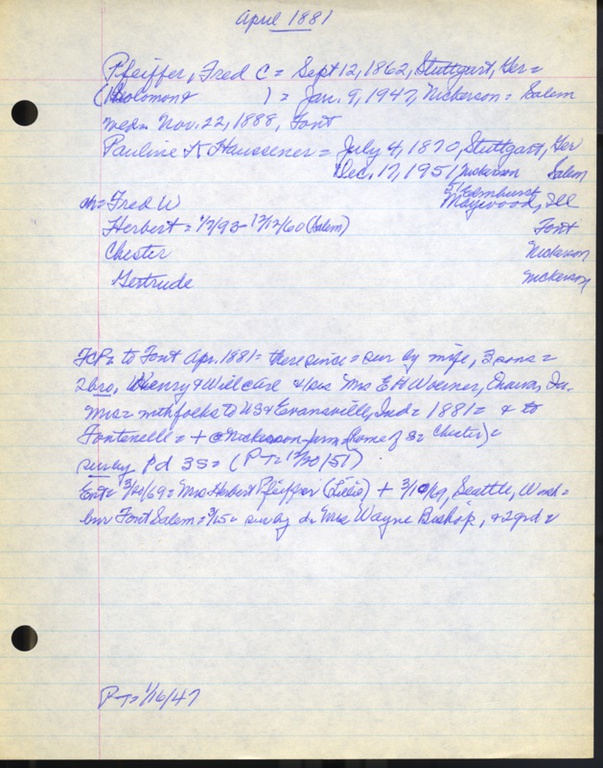 April 1881
Pfeiffer, Fred C = Sept 12, 1862, Stuttgart, Ger =
(Solomon & ) = Jan. 9, 1947, Nickerson = Salem
wed = Nov. 22, 1888, Font
Pauline K Haussener = July 4, 1870, Stuttgart, Ger
Dec. 17, 1951, Nickerson Salem
ch = Fred W
51 Elmhurst
Maywood, Ill
Herbert = 1/7/93 - 12/12/60 (Salem) Font
Chester Nickerson
Gertrude Nickerson
FCP = to Font Apr. 1881 = there since = sur by wife, 3 sons =
2 bro, Henry & Will care & sis Mrs E H Woerner,
Mrs = with folks to US & Evansville, Ind = 1881 = & to
Fontenelle = + @ Nickerson farm (home of s = Chester) =
sur by 1d 3s = (P-T = 12/20/51)
Ent = 3/20/69 = Mrs Herbert Pfeiffer (Lillie) + 3/10/69, Seattle, Wash =
bur Font Salem = 3/15 = sur by d = Mrs Wayne Bishop, & 2 grd =
P-T = 1/16/47